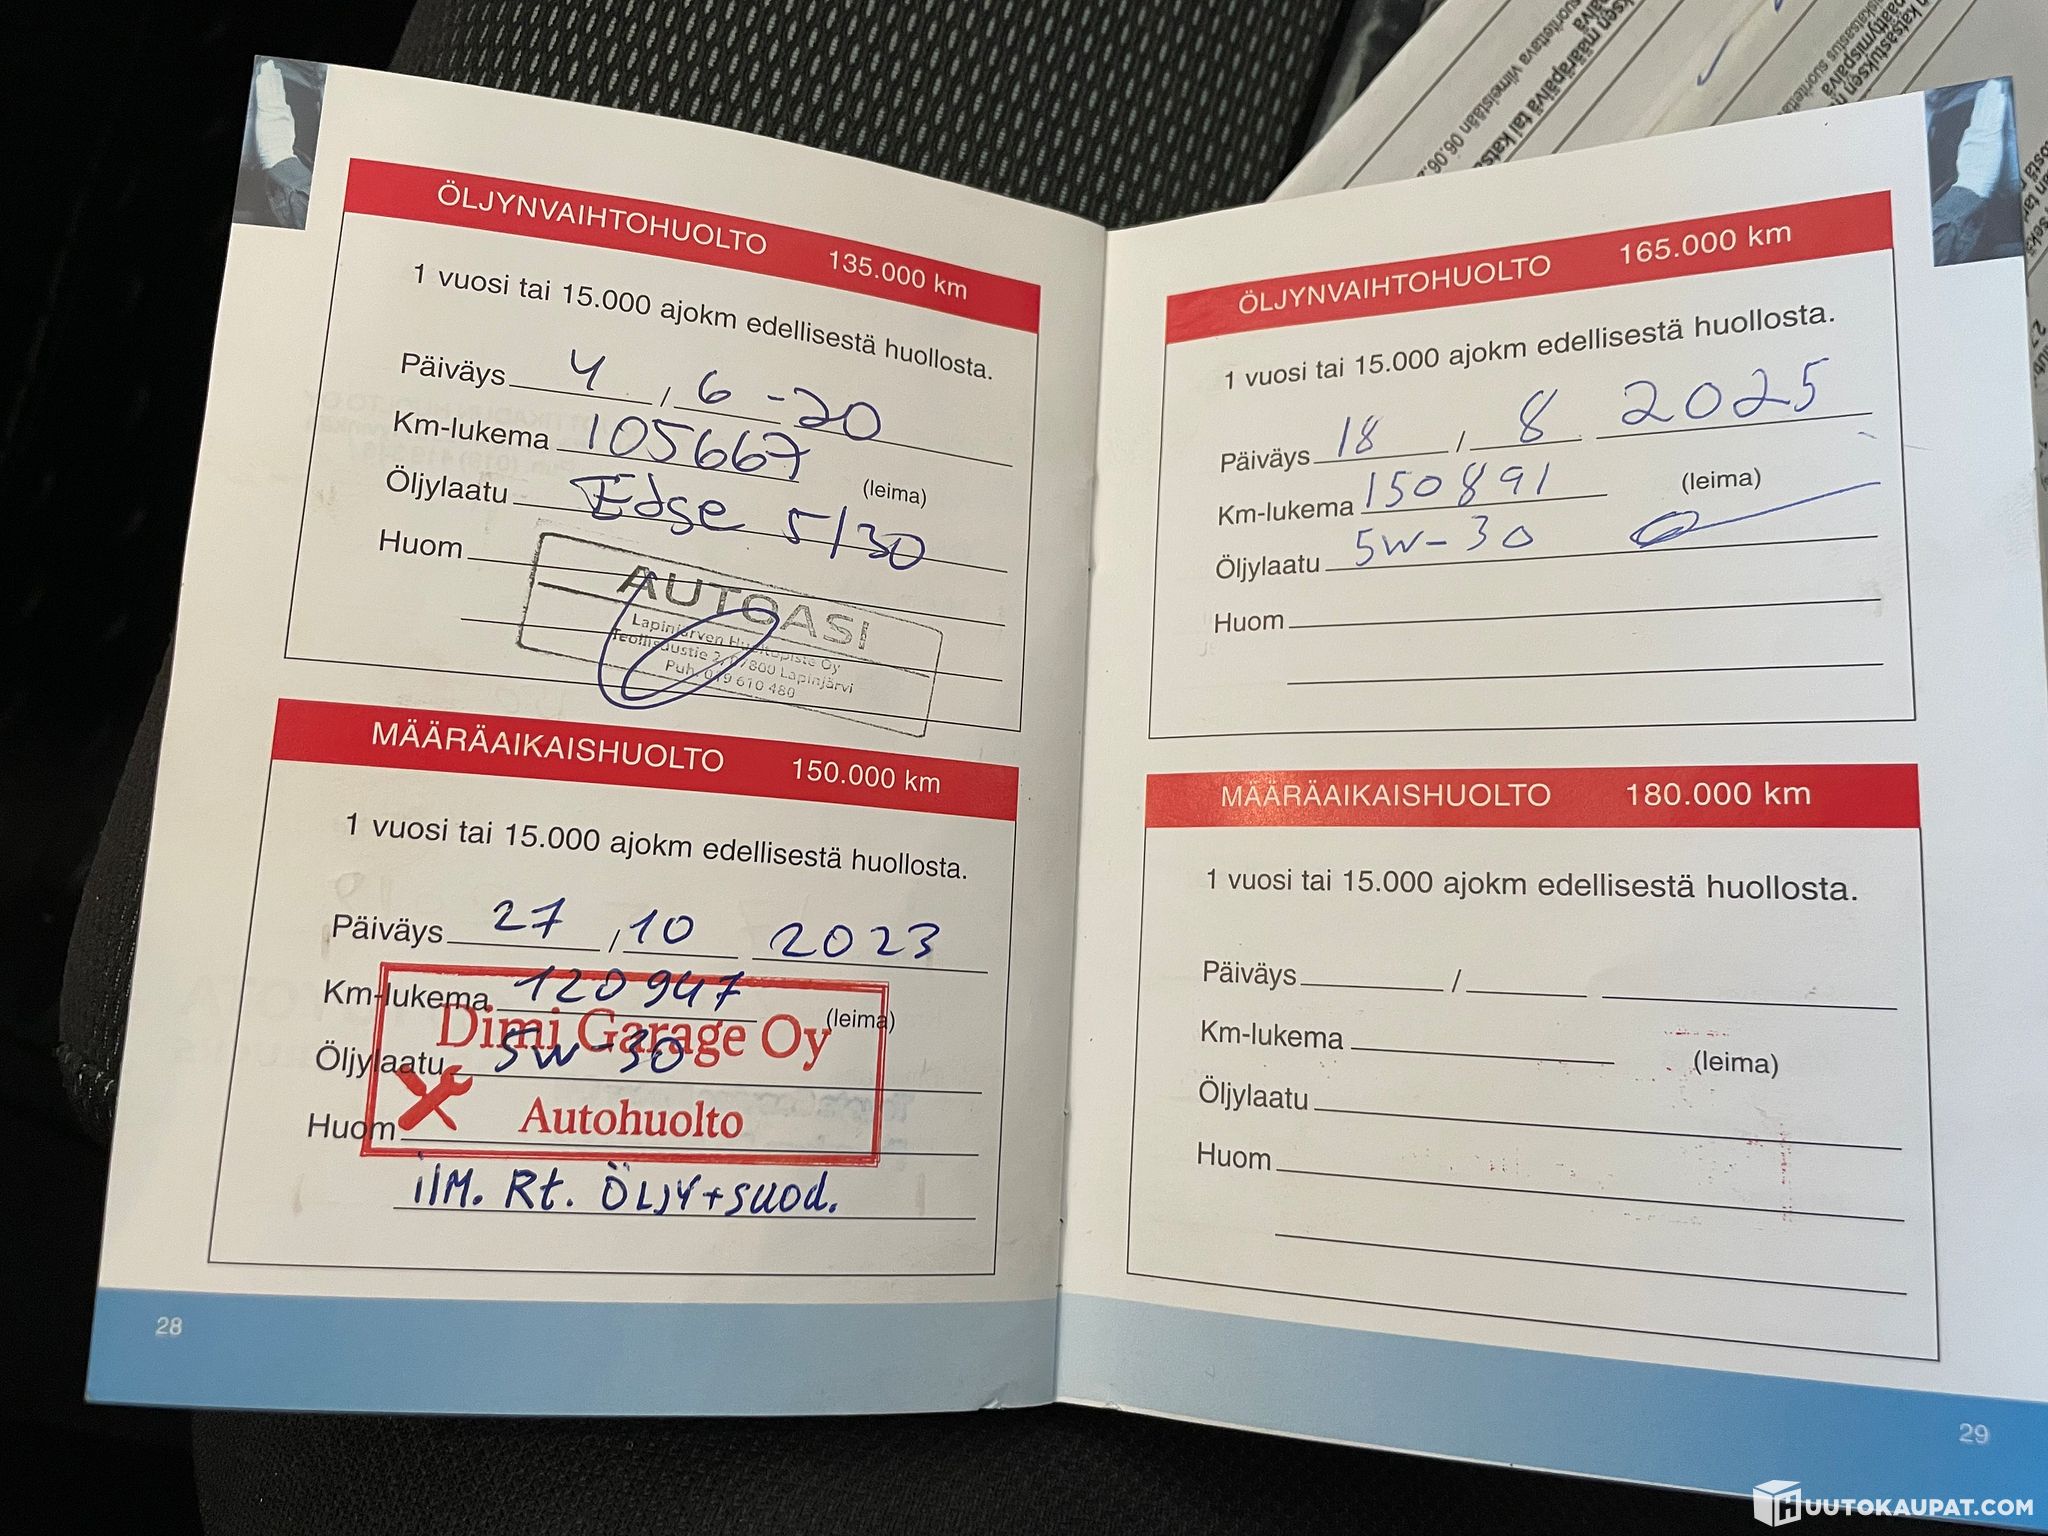 ÖLJYNVAIHTOHUOLTO 135.000 km
1 vuosi tai 15.000 ajokm edellisestä huollosta.
Päiväys 4 / 6 - 20
Km-lukema 105667
(leima)
Öljylaatu Edge 5/30
Huom
AUTOASI
Lapinjärven Huoltopiste Oy
Teollisuustie 2, 07800 Lapinjärvi
Puh. 019 610 480
MÄÄRÄAIKAISHUOLTO 150.000 km
1 vuosi tai 15.000 ajokm edellisestä huollosta.
Päiväys 27 / 10 2023
Km-lukema 120947
(leima)
Dimi Garage Oy
Öljylaatu 5W-30
Autohuolto
Huom
ilM. Rt. ÖLJY+suod.
28
ÖLJYNVAIHTOHUOLTO 165.000 km
1 vuosi tai 15.000 ajokm edellisestä huollosta.
Päiväys 18 / 8 2025
Km-lukema 150891
(leima)
Öljylaatu 5W-30
Huom
MÄÄRÄAIKAISHUOLTO 180.000 km
1 vuosi tai 15.000 ajokm edellisestä huollosta.
Päiväys /
Km-lukema
(leima)
Öljylaatu
Huom
29
HUUTOKAUPAT.COM